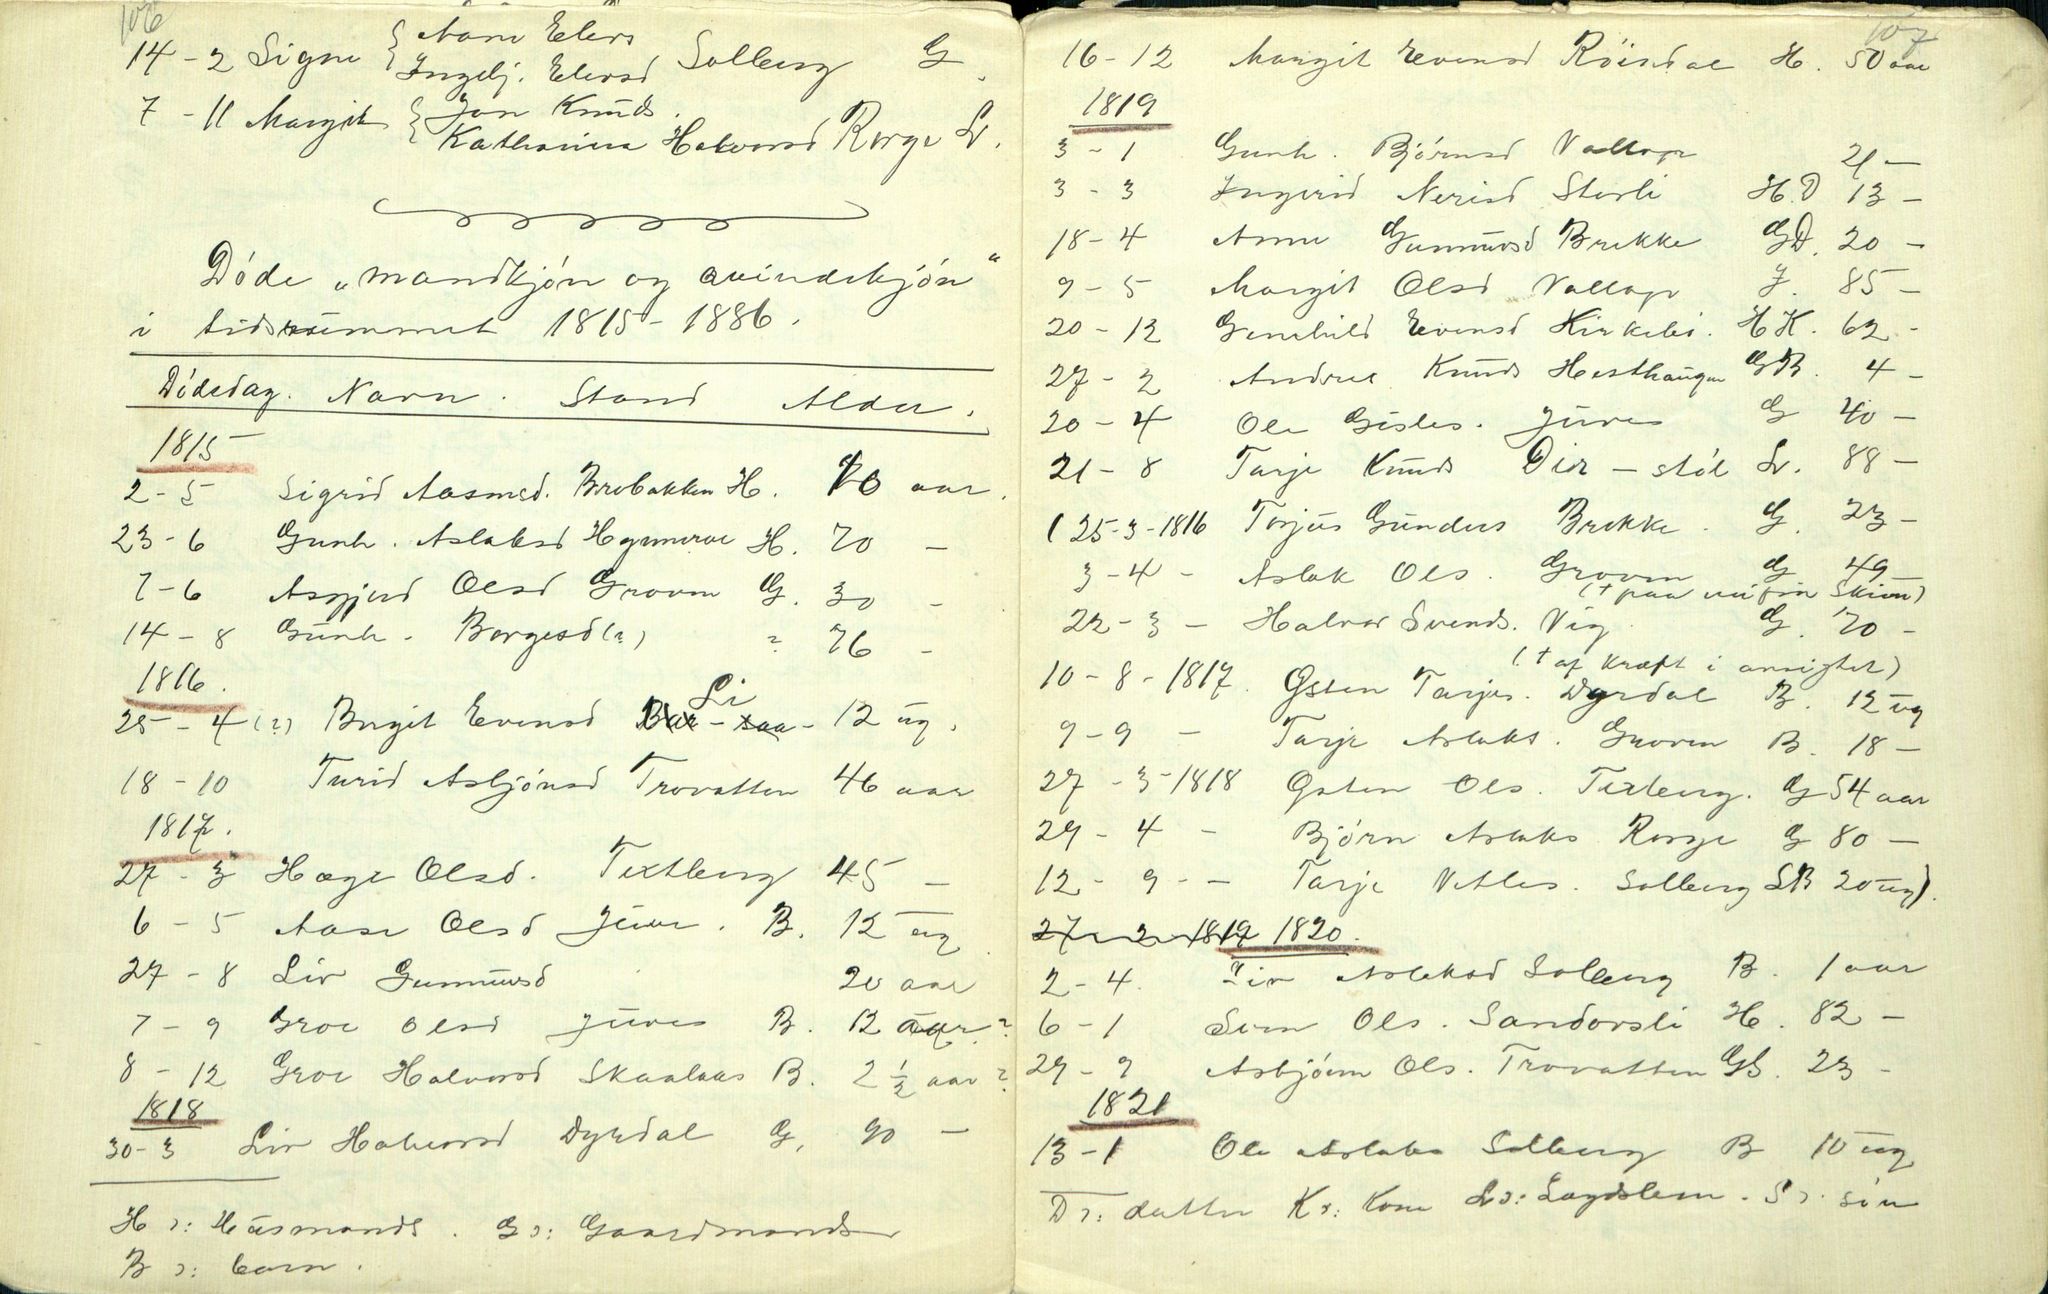 106
14 - 2 Signe { Aani Elevs
Ingebj. Elevsd Solberg G.
7 - 11 Margit { Jon Knuds.
Katharina Halvorsd Rorge Lv.
Döde „mandkjön og qvindekjön“
i tidsrummet 1815 - 1886.
Dödsdag. Navn. Stand Alder.
1815
2 - 5 Sigrid Aasmsd. Brobakken H. 70 aar.
23 - 6 Gunh. Aslaksd H. 70 -
7 - 6 Asgjerd Olsd Groven G. 30 -
14 - 8 Gunh. Borgesd (?) ? 76 -
1816.
25 - 4 (?) Birgit Evensd Li 12 ug.
18 - 10 Turid Asbjönsd Trovatten 46 aar
1817.
27 - 3 Hæge Olsd. Textberg 45 -
6 - 5 Aase Olsd Juve. B. 12 ug
27 - 8 Liv Gunnuvsd 20 aar
7 - 9 Groe Olsd Juves B. 12 aar?
8 - 12 Groe Halvorsd Skaalaas B. 2 1/2 aar?
1818
30 - 3 Liv Halvorsd Dyrdal G. 90 -
H ɔ: Husmands. G ɔ: Gaardmands
B ɔ: barn.
107
16 - 12 Margit Evensd Röisdal H. 50 aar
1819
3 - 1 Gunh. Björnsd Vallage 21 -
3 - 3 Ingerid Nerisd Sterli H.D 13 -
18 - 4 Anne Gunnuvsd Brekke GD. 20 -
9 - 5 Margit Olsd Vallage J. 85 -
20 - 12 Gunhild Evensd Kirkebö. HK. 62 -
27 - 2 Andres Knuds Hesthaugen GB. 4 -
20 - 4 Ole Gisles. Juves G 40 -
21 - 8 Tarje Knuds Dir - stöl Lv. 88 -
( 25-3-1816 Torjus Gunders Brekke. G. 23 -
3 - 4 - Aslak Ols. Groven G 49
22 - 3 - Halvor Svends. Vig. G. 70 -
(† af kræft i ansigtet)
10 - 8 - 1817. Östen Tarjes. Dyrdal B. 12 ug
9 - 9 - Tarje Aslaks. Groven B. 18 -
27 - 3 - 1818 Östen Ols. Textberg. G 54 aar
29 - 4 - Björn Aslaks Rorge G 80 -
12 - 9 - - Tarje Vetles. Solberg LB 20 ug).
27 - 2 - 1819 1820.
2 - 4. Liv Aslaksd Solberg B. 1 aar
6 - 1 Sven Ols. Sandovsli H. 82 -
29 - 9 Asbjörn Ols. Trovatten GS. 23 -
1821
13 - 1 Ole Aslaks Solberg B 10 ug
D ɔ: datter K ɔ: Kone L ɔ: Lægdslem. S ɔ: sön